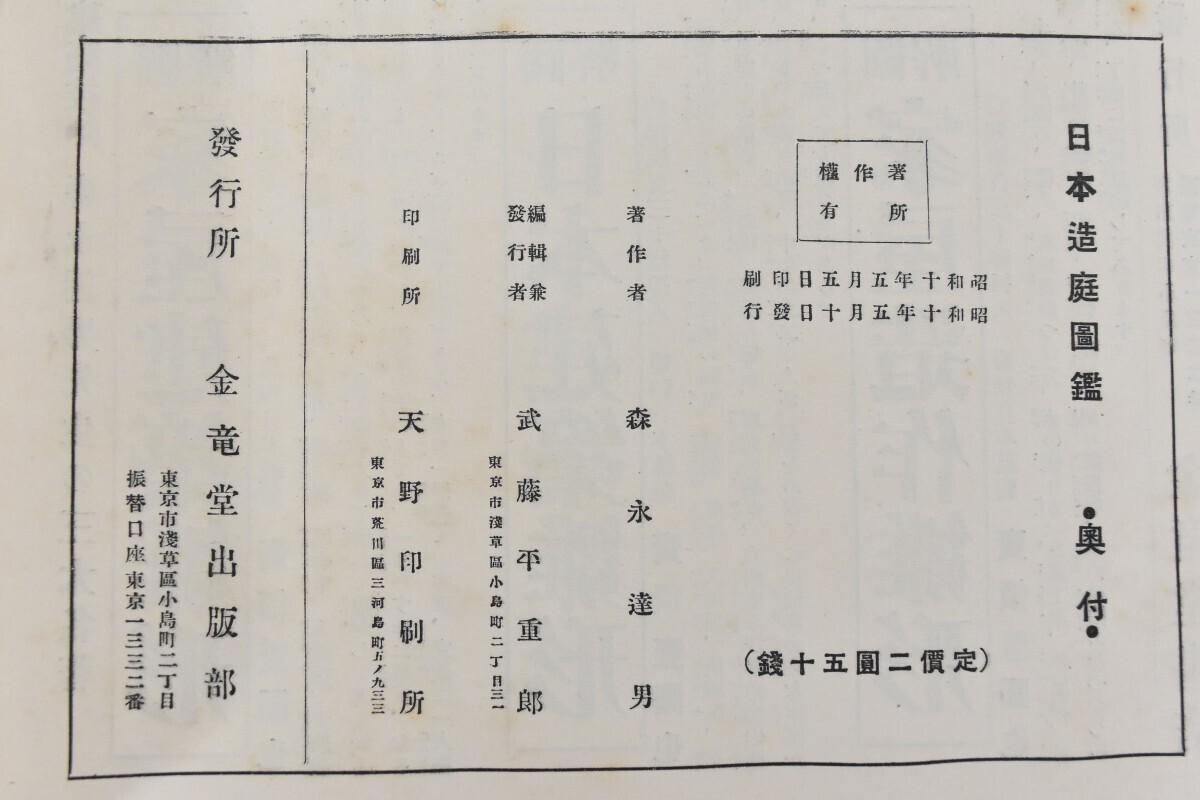 日本造庭圖鑑 •奥付•
著作權
所有
昭和十年五月五日印刷
昭和十年五月十日發行
(定價二圓五十錢)
著作者 森永達男
編輯兼
發行者 武藤平重郎
東京市淺草區小島町二丁目三一
印刷所 天野印刷所
東京市荒川區三河島町五ノ九三三
發行所 金竜堂出版部
東京市淺草區小島町二丁目
振替口座東京一三三二番